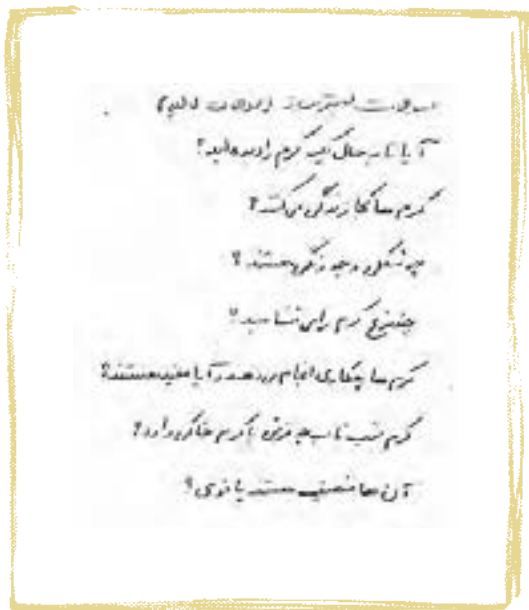 سوالات
آیا تا به حال یک کرم را دیده اید؟
کرم ها کجا زندگی می کنند؟
چه شکلی و چه رنگی هستند؟
چند نوع کرم را می شناسید؟
کرم ها چه کاری انجام می دهند و آیا مفید هستند؟
کرم شب تاب چه فرقی با کرم خاکی دارد؟
آن ها ضعیف هستند یا قوی؟